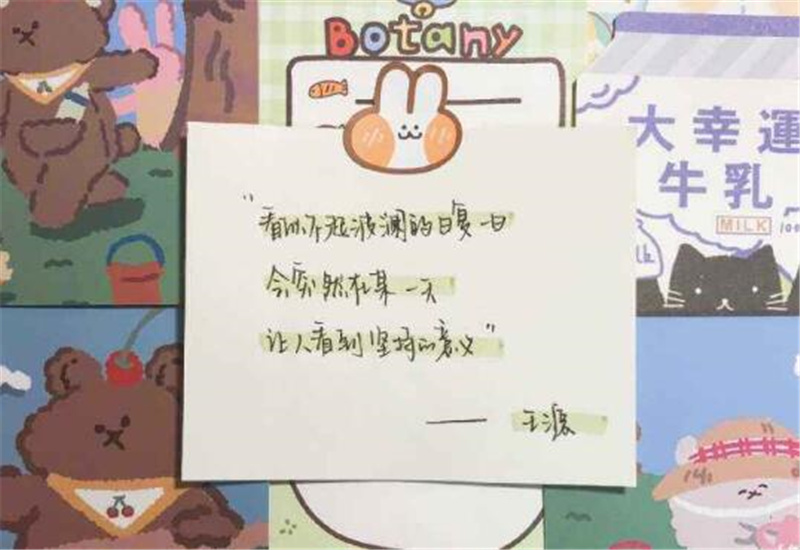 Botany
大幸運
牛乳
MILK
"看似不起波澜的日复一日
会突然在某一天
让人看到坚持的意义"
—— 王源